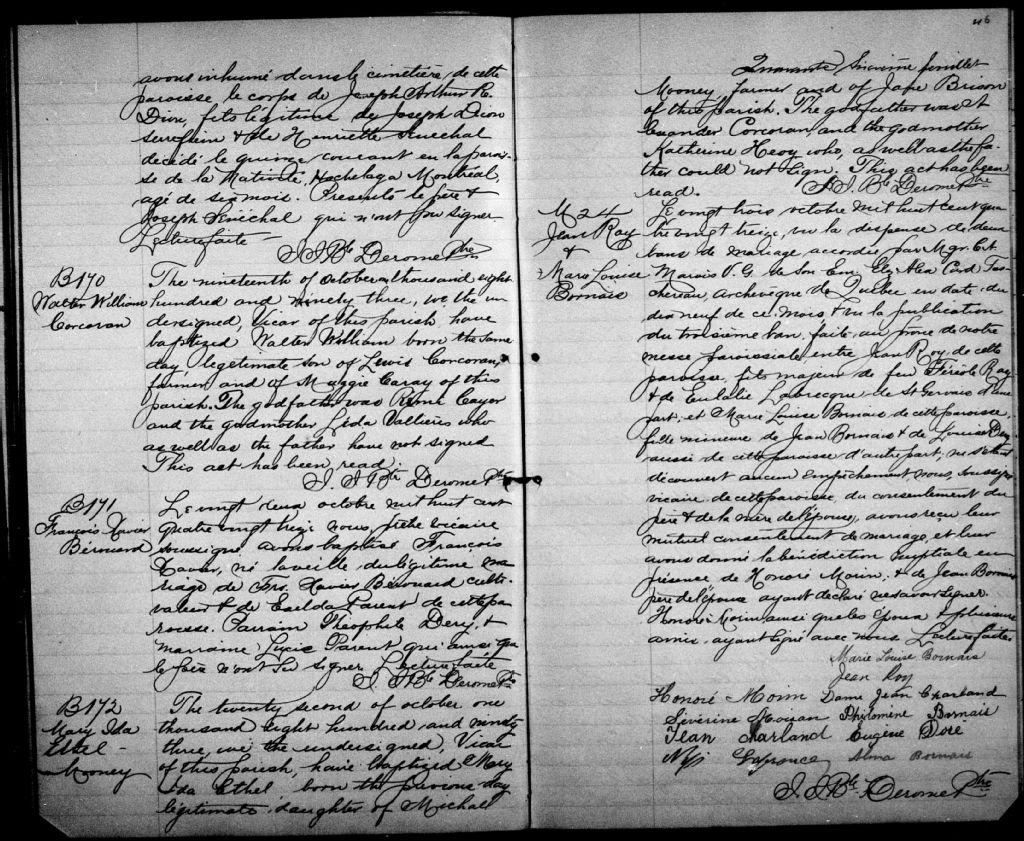 avons inhumé dans le cimetière de cette
paroisse le corps de Joseph Arthur R.
Dion, fils légitime de Joseph Dion
& de Henriette Sénéchal
décédé le quinze courant en la parois-
se de la Nativité, Hochelaga Montréal
agé de six mois. Présents le père &
Joseph Sénéchal qui n'ont pu signer
Lecture faite —
J. J. Bte Derome Ptre
B170
Walter William
Corcoran
The nineteenth of october a thousand eight
hundred and ninety three, we the un
dersigned, Vicar of this parish have
baptized Walter William born the same
day, legitimate son of Lewis Corcoran,
farmer and of Maggie Caray of this
parish. The godfather was Rémi Cayer
and the godmother Lida Vallières who
as well as the father have not signed
This act has been read.
J. J. Bte Derome Ptre
B171
François Xavier
Bérouard
Le vingt deux octobre mil huit cent
quatre vingt treize nous, prêtre vicaire
soussigné avons baptisé François
Xavier, né la veille du légitime ma
riage de Frs. Xavier Bérouard culti-
vateur & de Exilda Parent de cette pa
roisse. Parrain Théophile Dery, &
marraine Parent qui ainsi que
le père n'ont su signer. Lecture faite
J. J. Bte Derome Ptre
B172
Mary Ida
Ethel —
Mooney
The twenty second of october one
thousand eight hundred and ninety
three, we the undersigned, Vicar
of this parish, have baptized Mary
Ida Ethel born the previous day
legitimate daughter of Michael
46
Quarante sixième feuillet
Mooney, farmer and of Jape Brison
of this parish. The godfather was Al
exander Corcoran and the godmother
Katherine Heoy who, as well as the fa-
ther could not sign. This act has been
read.
J. J. Bte Derome Ptre
M24
Jean Roy
&
Marie Louise
Bornais
Le vingt trois octobre mil huit cent qua
tre vingt treize, vu la dispense de deux
bans de mariage accordée par Mgr. C. A.
Marois V. G. de Son Em. Elz. Alex Card Tas-
chereau, archevêque de Québec en date du
dix neuf de ce mois & vu la publication
du troisième ban, faite au prône de notre
messe paroissiale entre Jean Roy, de cette
paroisse, fils majeur de feu Roy
& de Eulalie Labrecque de St Gervais d'une
part, et Marie Louise Bornais de cette paroisse,
fille mineure de Jean Bornais & de Louise
aussi de cette paroisse d'autre part; ne s'étant
découvert aucun empêchement, nous, soussigné
vicaire de cette paroisse, du consentement du
père & de la mère de l'épouse, avons reçu leur
mutuel consentement de mariage, et leur
avons donné la bénédiction nuptiale en
présence de Honoré Morin, & de Jean Bornais
père de l'épouse ayant déclaré ne savoir signer.
Honoré Morin ainsi que les époux & plusieurs
amis ayant signé avec nous. Lecture faite.
Marie Louise Bornais
Jean Roy
Honoré Morin Dame Jean Charland
Séverine Philomène Bornais
Jean Charland Eugène Doré
Lafrance Alma Bornais
J. J. Bte. Derome Ptre